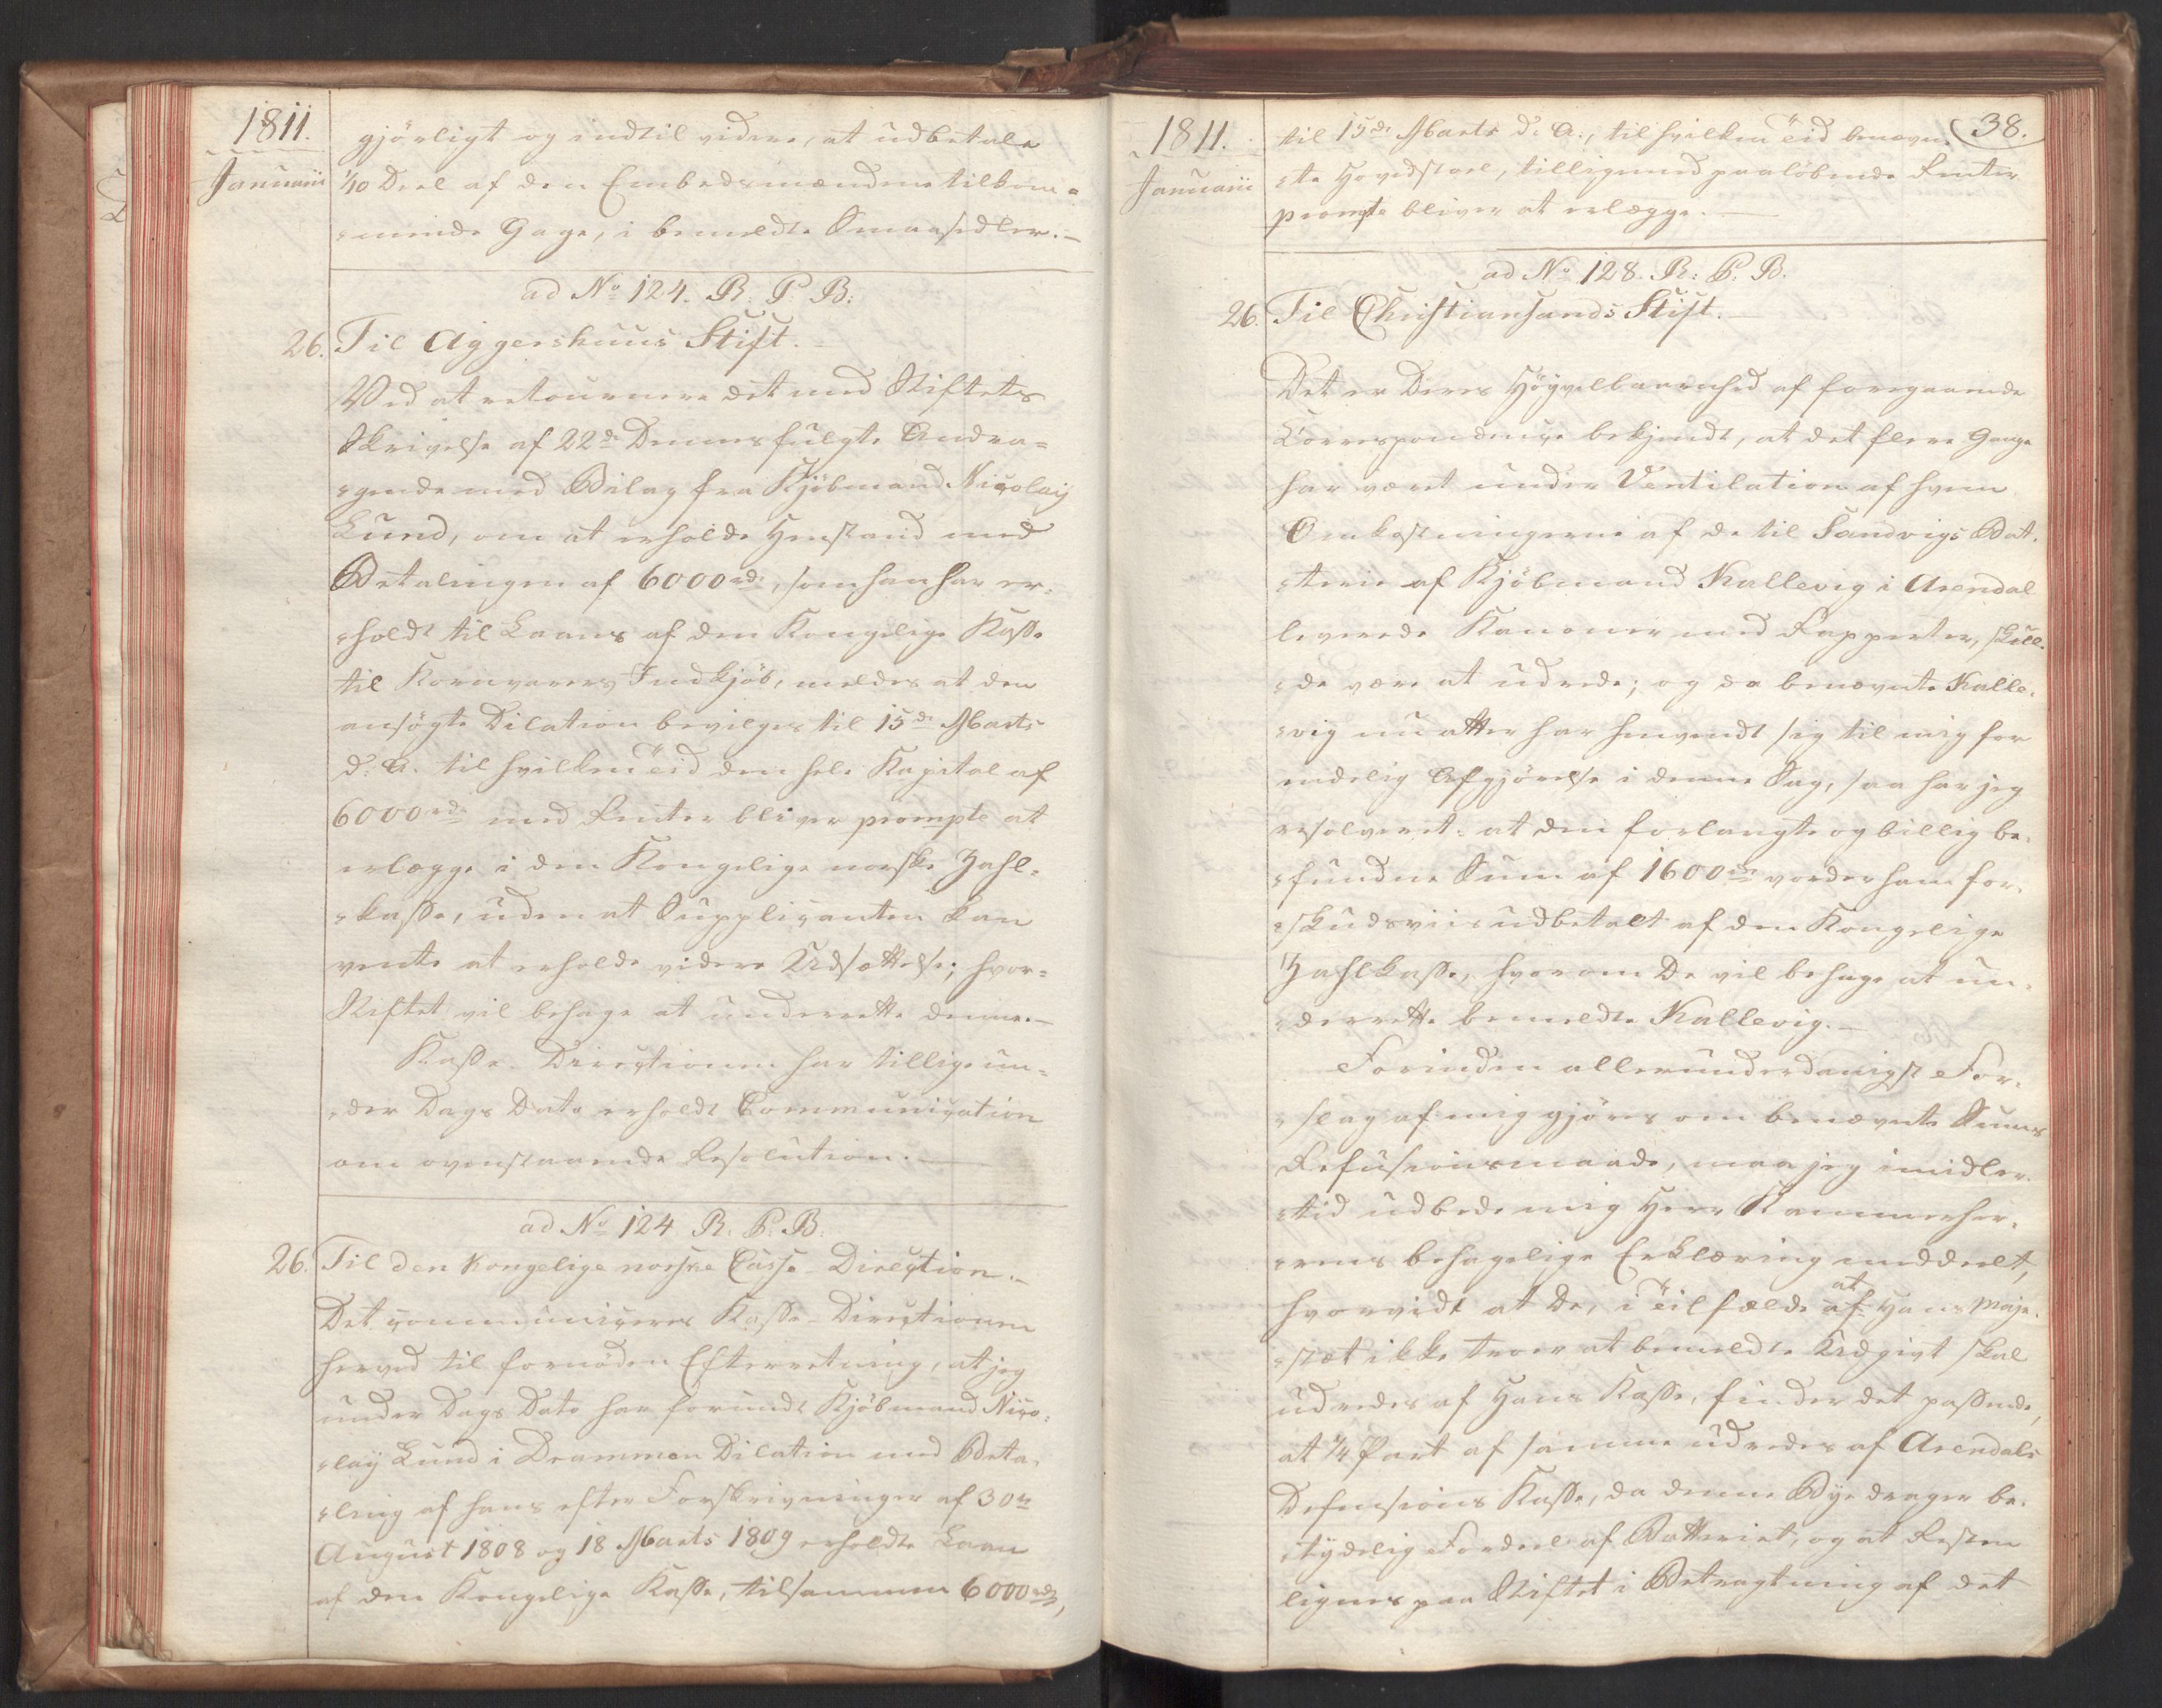 1811.
Januarii
gjörligt og indtil videre, at udbetale
1/10 Deel af den Embedsmændene tilkom=
=mende Gage, i bemeldte Smaasedler.-
ad No 124. R: P: B:
26. Til Aggershuus Stift.
Ved at retournere det med Stiftets
Skrivelse af 22de Dennes fulgte Andra=
=gende med Bilag fra Kjöbmand Nicolay
Lund, om at erholde Henstand med
Betalingen af 6000 rd, som han har er=
=holdt til Laans af den Kongelige Kasse
til Kornvarers Indkjöb, meldes at den
ansögte Dilation bevilges til 15de Marts
d: A. til hvilken Tid den hele Kapital af
6000 rd med Renter bliver prompte at
erlægge i den Kongelige norske Zahl=
=kasse, uden at Supplicanten kan
vente at erholde videre Udsættelse; hvor=
Stiftet vil behage at underrette denne.-
Kasse-Directionen har tillige un=
=der Dags Dato erholdt Communication
om ovenstaaende Resolution.-
ad No 124 R. P. B.
26. Til den Kongelige norske Casse-Direction.-
Det communiceres Kasse-Directionen
herved til fornöden Efterretning, at jeg
under Dags Dato har forundt Kjöbmand Nico=
=lay Lund i Drammen Dilation med Beta=
=ling af hans efter Forskrivninger af 30te
August 1808 og 18 Marts 1809 erholdte Laan
af den Kongelige Kasse, tilsammen 6000 rd,
38.
1811.
Januarii
til 15de Marts d: A:, til hvilken Tid benævn=
=te Hovedstoel, tilligemed paalöbende Renter
prompte bliver at erlægge.-
ad No 128. R: P: B.
26. Til Christiansands Stift.-
Det er Deres Höyvelbaarenhed af foregaaende
Correspondence bekjendt, at det flere Gange
har været under Ventilation af hvem
Omkostningerne af de til Sandvigs Bat=
=terie af Kjöbmand Kallevig i Arendal
leverede Kanoner med Rapperter, skull=
=de være at udrede; og da benævnte Kalle=
=vig nu atter har henvendt sig til mig for
endelig Afgjörelse i denne Sag, saa har jeg
resolveret: at den forlangte og billig be=
=fundne Sum af 1600 rd vorder ham for=
=skudsviis udbetalt af den Kongelige
Zahlkasse, hvorom De vil behage at un=
=derrette bemeldte Kallevig.-
Forinden allerunderdanigst For=
=slag af mig gjöres om benævnte Sums
Refusionsmaade, maa jeg imidler=
=tid udbede mig Herr Kammerher=
=rens behagelige Erklæring meddeelt,
hvorvidt at De, i Tilfælde af at Hans Maje=
=stæt ikke troer at bemeldte Udgivt skal
udredes af Hans Kasse, finder det passende,
at 1/4 Part af samme udredes af Arendals
Defensions Kasse, da denne Bye drager be=
=tydelig Fordeel af Batteriet, og at Resten
lignes paa Stiftet i Betragtning af det